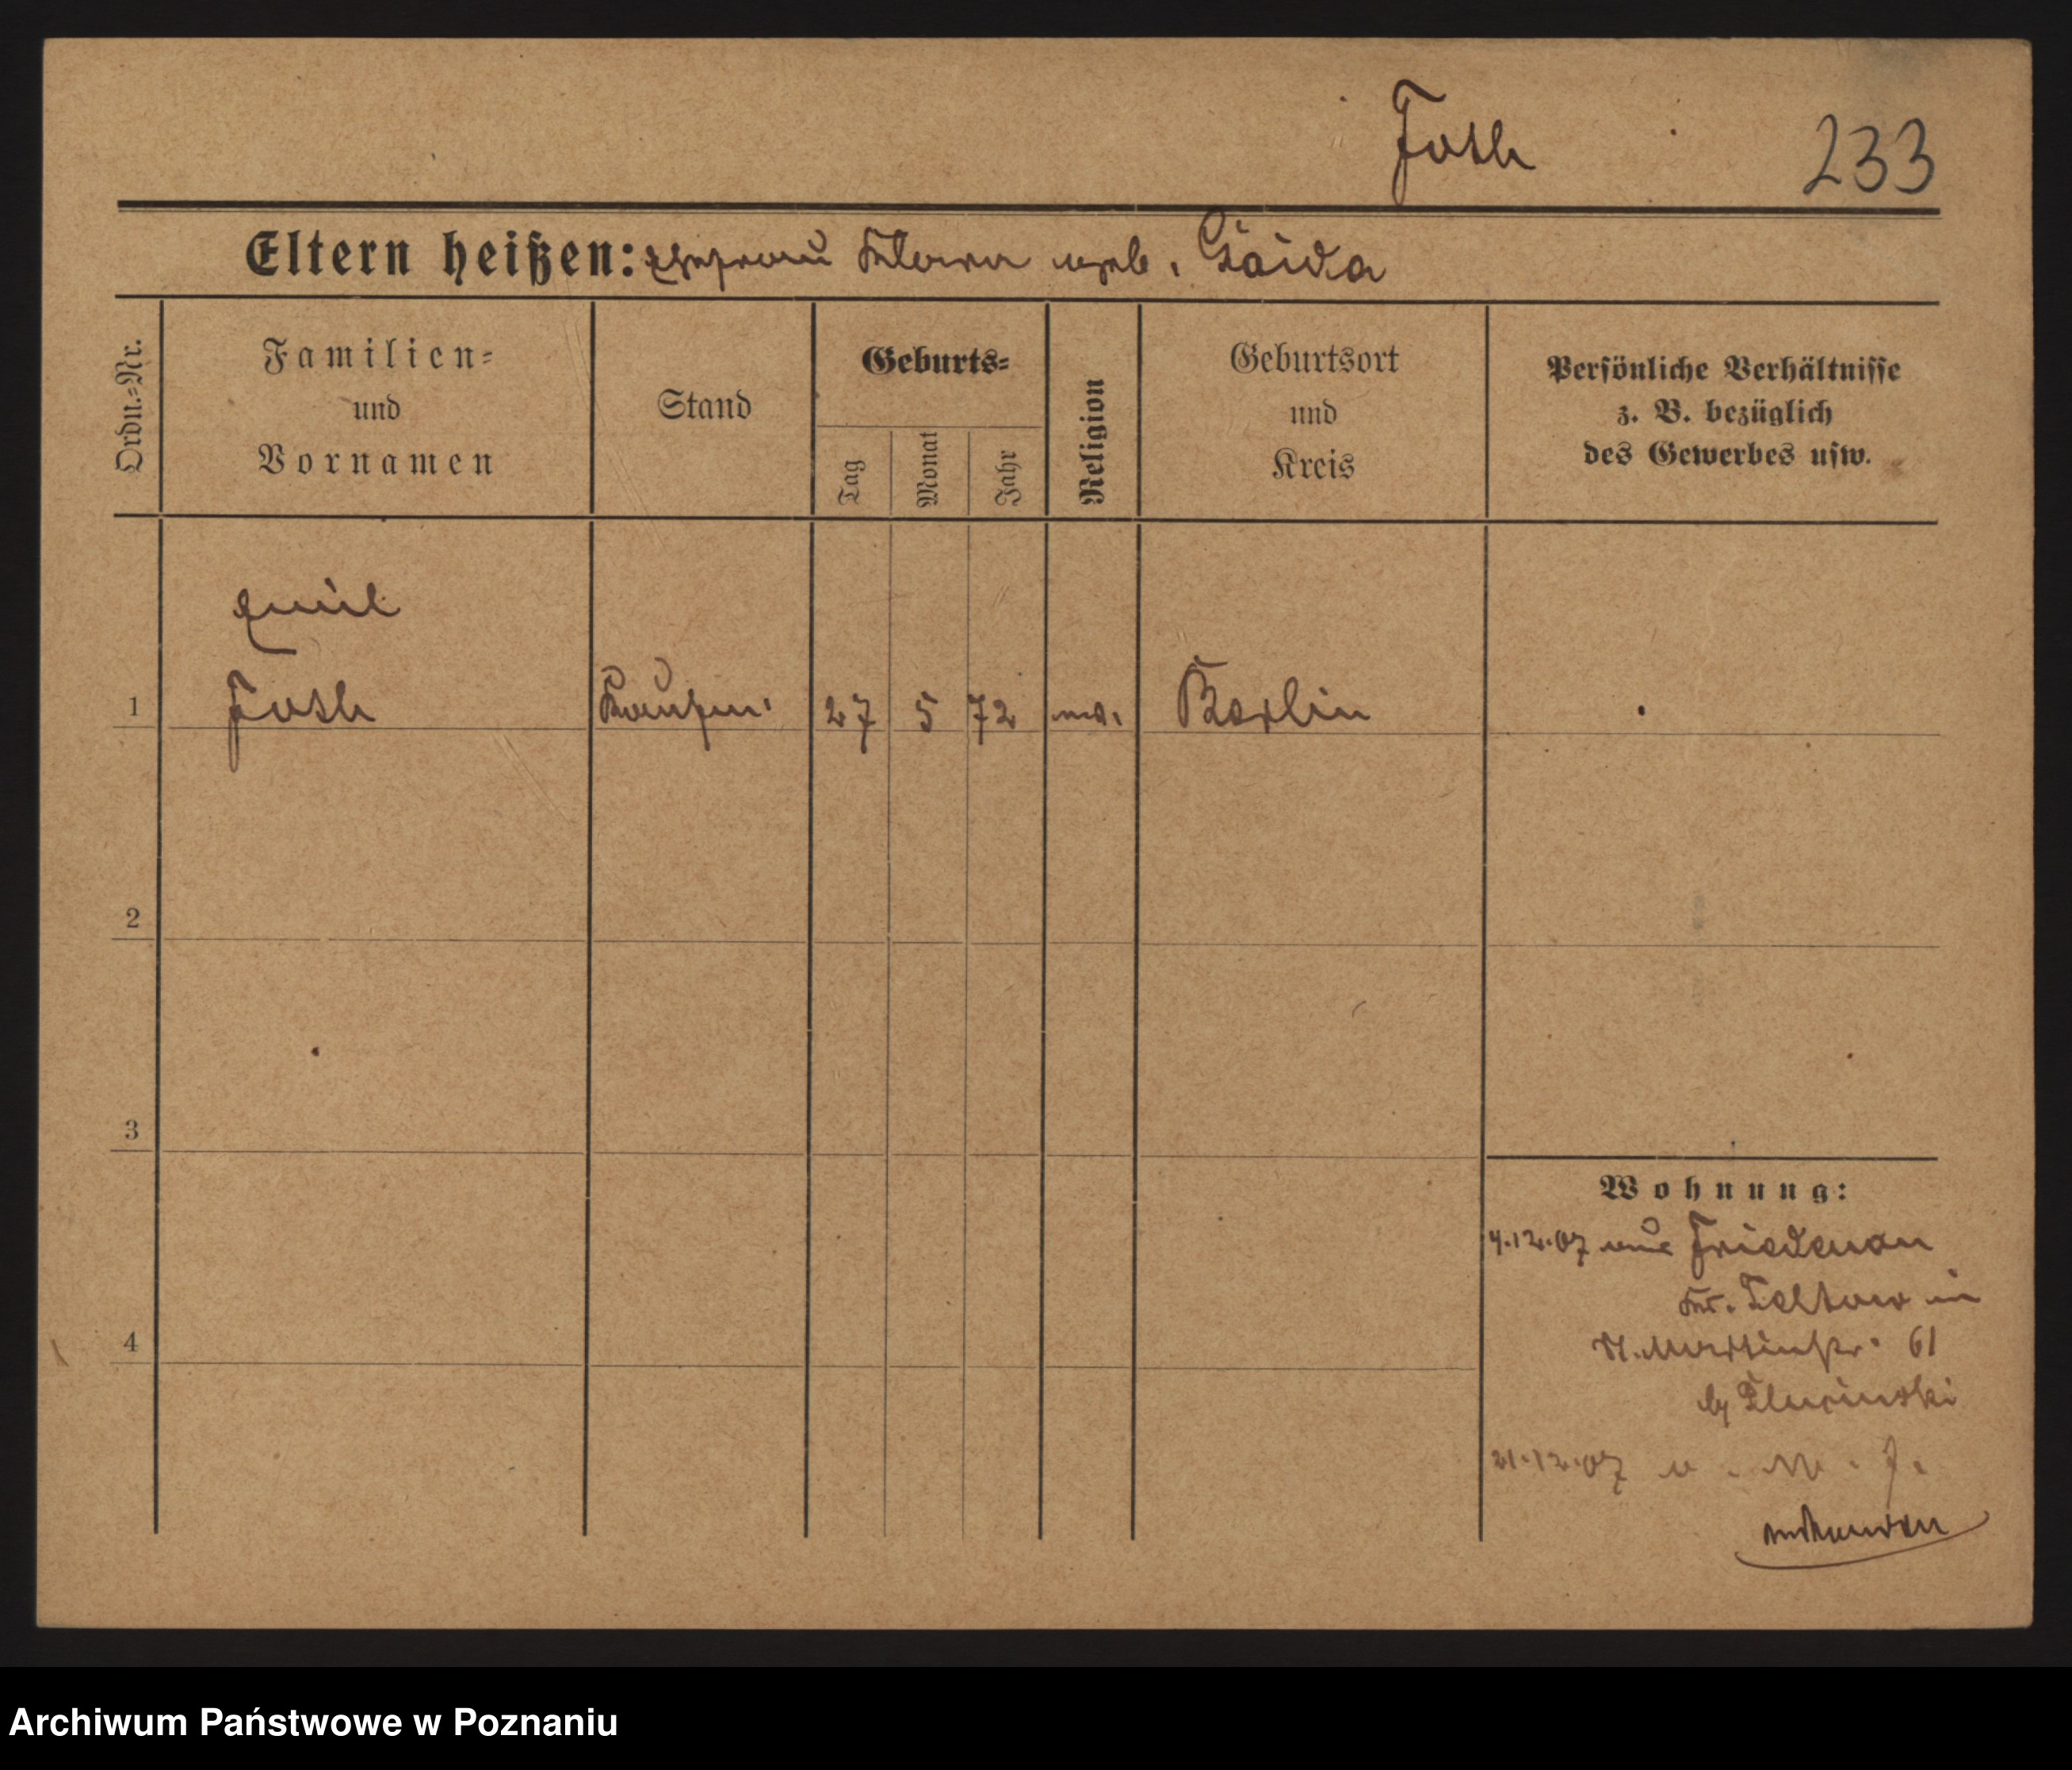 Foth 233
Eltern heißen: Ehefrau Klara geb. Gaida
Ordn.-Nr.
Familien-
und
Vornamen
Stand
Geburts-
Tag
Monat
Jahr
Religion
Geburtsort
und
Kreis
Persönliche Verhältnisse
z. B. bezüglich
des Gewerbes usw.
Emil
1 Foth Kaufm. 27 5 72 Berlin
2
3
4
Wohnung:
4.12.07 aus Friedenau
Kr. Teltow in
St. Martinstr. 61
by
21.12.07
Archiwum Państwowe w Poznaniu